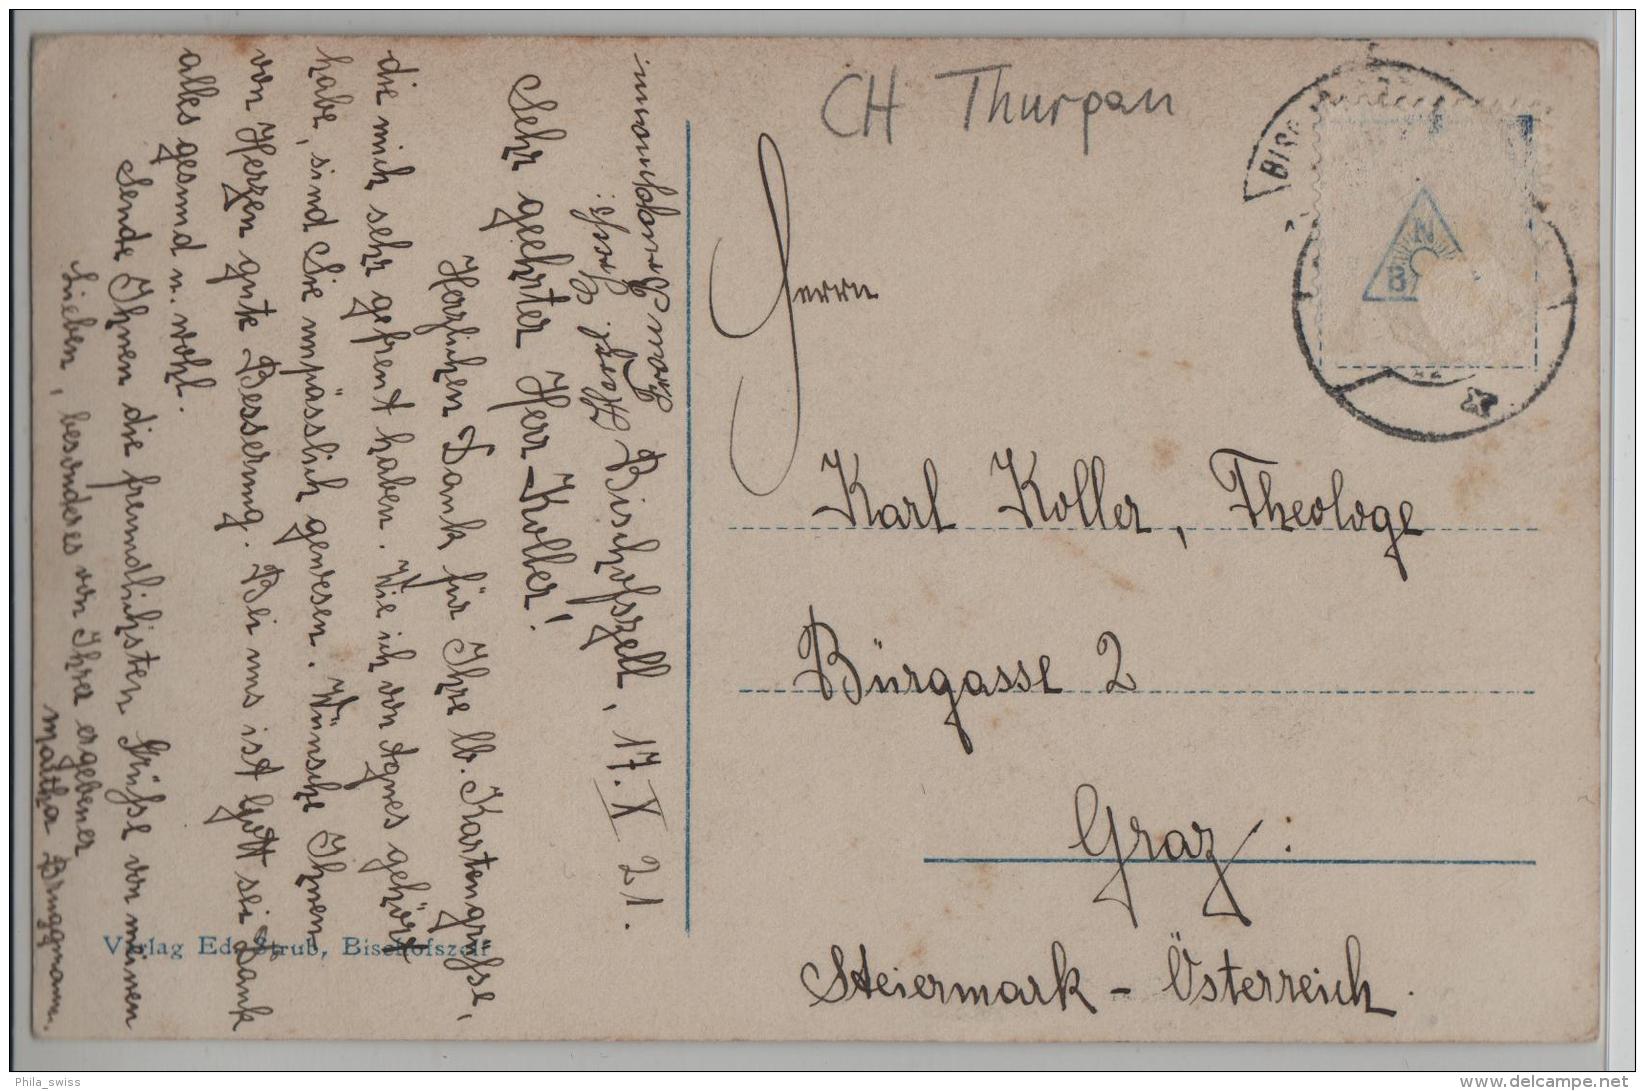 CH Thurgau
Bischofszell, 17. X 21.
Sehr geehrter Herr Koller!
Herzlichen Dank für Ihre lb. Kartengrüsse,
die mich sehr gefreut haben. Wie ich von Agnes gehört
habe, sind Sie unpässlich gewesen. Wünsche Ihnen
von Herzen gute Besserung. Bei uns ist Gott sei Dank
alles gesund u. wohl.
Sende Ihnen die freundlichsten Grüsse von meinen
Lieben, besonders von Ihrer ergebener
Martha Bruggmann.
Herrn
Karl Koller, Theologe
Bürgasse 2
Graz:
Steiermark - Österreich.
Verlag Ed. Strub, Bischofszell
BISC
N
B
Phila_swiss
www.delcampe.net